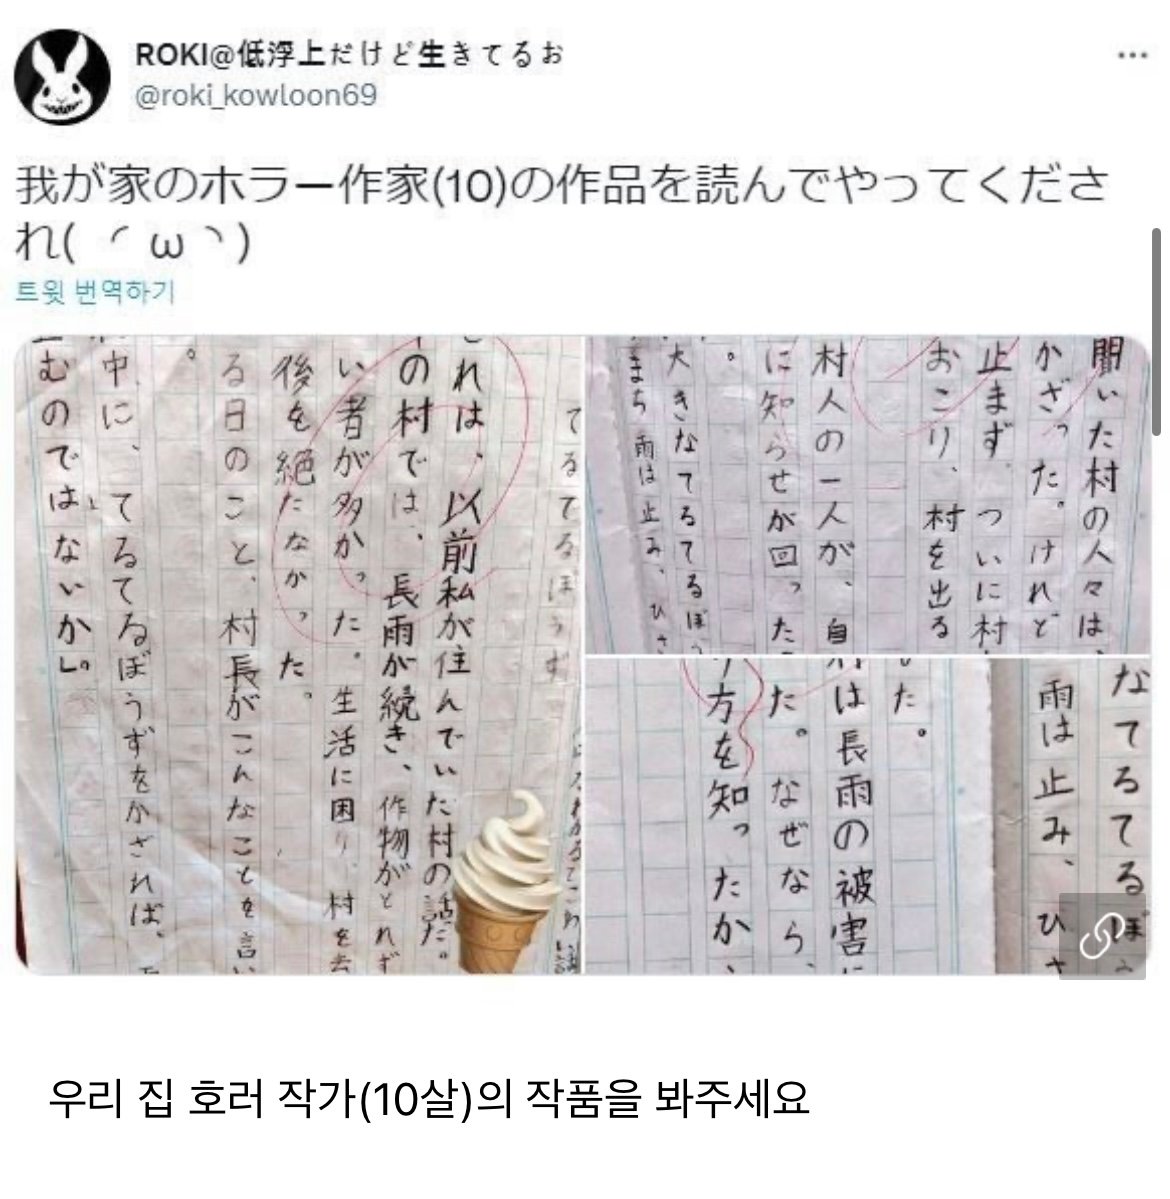 ROKI@低浮上だけど生きてるお
@roki_kowloon69
我が家のホラー作家(10)の作品を読んでやってくださ
れ( ´ ω ` )
트윗 번역하기
てるてるぼうず
れは、以前私が住んでいた村の話だ。
の村では、長雨が続き、作物がとれず
い者が多かった。生活に困り、村を去
後を絶たなかった。
る日のこと、村長がこんなことを言い
。
中に、てるてるぼうずをかざれば、
むのではないか」。
聞いた村の人々は、
かざった。けれど
止まず、ついに村
おこり、村を出る
村人の一人が、自
に知らせが回った
。
大きなてるてるぼう
まち雨は止み、ひさ
なてるてるぼ
雨は止み、ひさ
た。
は長雨の被害に
た。なぜなら、
り方を知ったか、
우리 집 호러 작가(10살)의 작품을 봐주세요